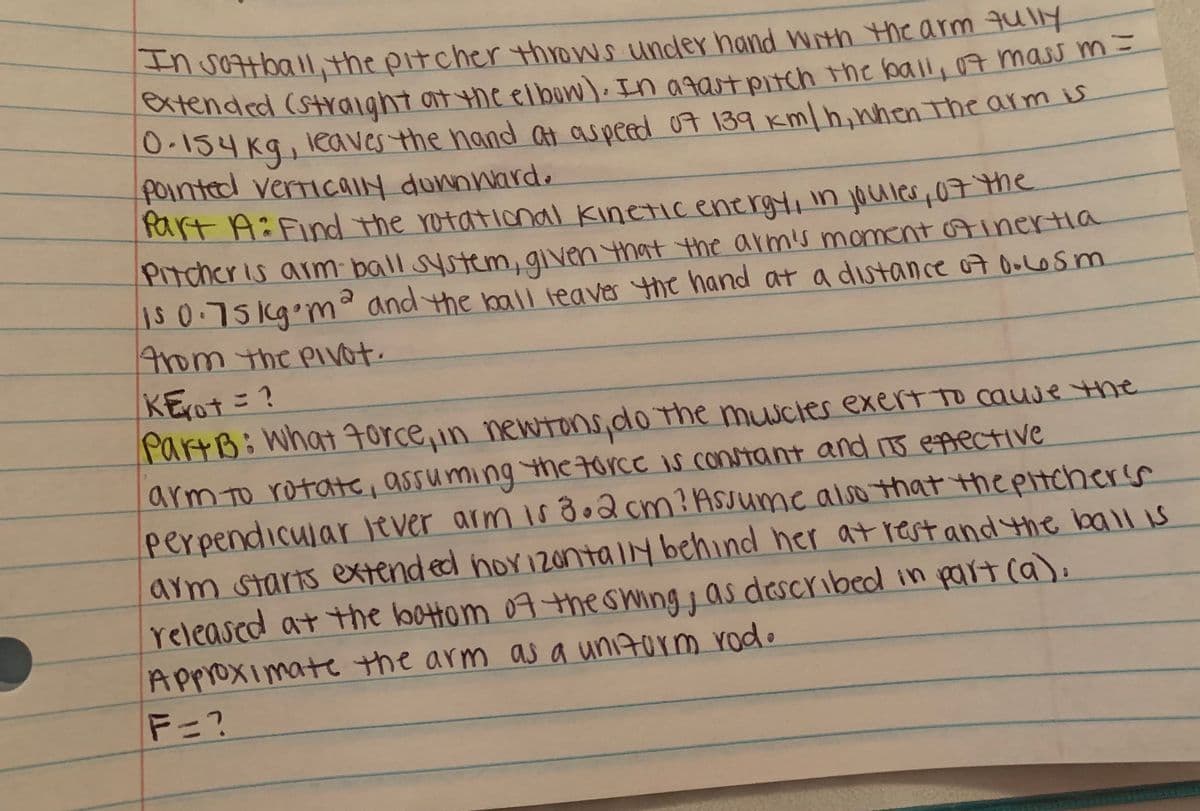 In softball, the pitcher throws underhand with the arm fully
extended (straight at the elbow). In a fast pitch the ball, of mass m =
0.154 kg, leaves the hand at a speed of 139 km/h, when the arm is
pointed vertically downward.
Part A: Find the rotational kinetic energy, in joules, of the
pitcher is arm-ball system, given that the arm's moment of inertia
is 0.75 kg•m² and the ball leaves the hand at a distance of 0.65m
from the pivot.
KErot = ?
Part B: What force, in newtons, do the muscles exert to cause the
arm to rotate, assuming the force is constant and its effective
perpendicular lever arm is 3.2 cm? Assume also that the pitcher's
arm starts extended horizontally behind her at rest and the ball is
released at the bottom of the swing, as described in part (a).
Approximate the arm as a uniform rod.
F = ?